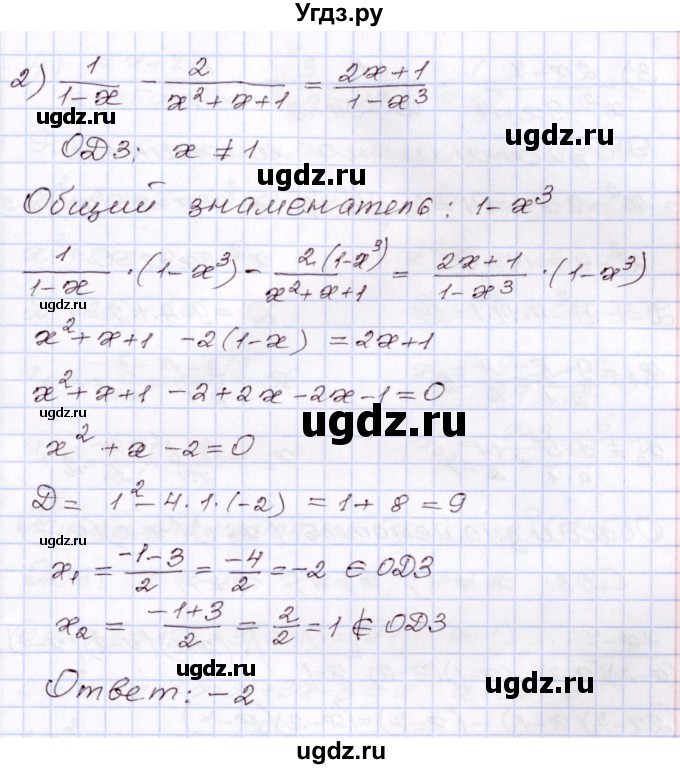 Угдз.ру
2) 1/(1-x) - 2/(x²+x+1) = (2x+1)/(1-x³)
ugdz.ru
ugdz.ru
ОДЗ: x ≠ 1
ugdz.ru
Общий знаменатель: 1-x³
ugdz.ru
1/(1-x) · (1-x³) - 2(1-x³)/(x²+x+1) = (2x+1)/(1-x³) · (1-x³)
ugdz.ru
x²+x+1 -2(1-x) = 2x+1
x²+x+1-2+2x-2x-1=0
ugdz.ru
ugdz.ru
x²+x-2=0
D= 1²-4·1·(-2) = 1+8=9
ugdz.ru
x₁ = (-1-3)/2 = -4/2 = -2 ∈ ОДЗ
ugdz.ru
x₂ = (-1+3)/2 = 2/2 = 1 ∉ ОДЗ
ugdz.ru
ugdz.ru
Ответ: -2
ugdz.ru
ugdz.ru